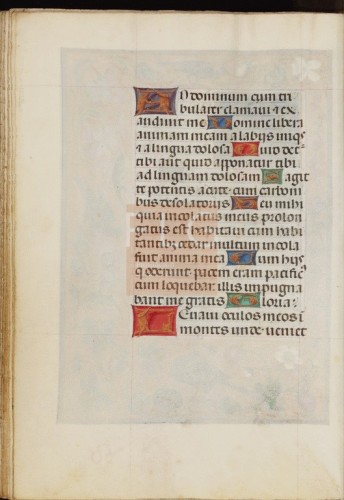 AD dominum cum tri
bularer clamaui et ex
audiuit me Domine libera
animam meam a labijs iniqis
et a lingua dolosa Quid det
tibi aut quid apponatur tibi
ad linguam dolosam Sagit
te potentis acute cum carboni
bus desolatorijs Heu mihi
quia incolatus meus prolon
gatus est habitaui cum habi
tantibz cedar multum incola
fuit anima mea Cum hijs
q oderunt pacem eram pacific9
cum loquebar illis impugna
bant me gratis Gloria
Leuaui oculos meos ī
montes unde ueniet